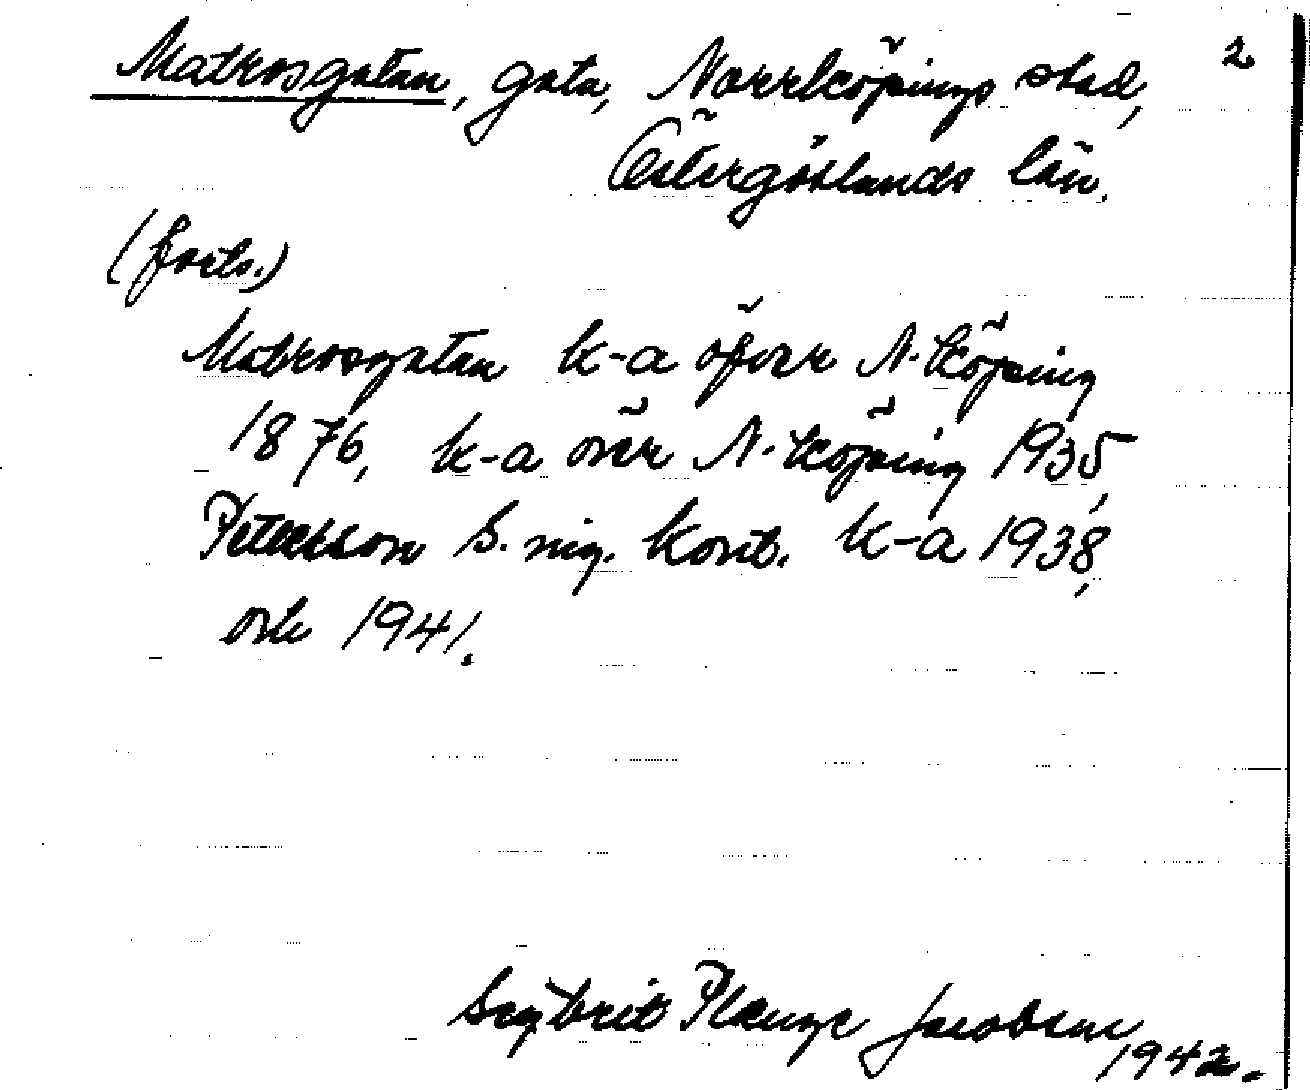 Matrosgatan, gata, Norrköpings stad, 2
Östergötlands län.
(forts.)
Matrosgatan k-a öfver N-köping
1876, k-a över N-köping 1935,
Petersson S. nig. kont. k-a 1938,
och 1941.
Seybrit Plænge Jacobsen
1942.